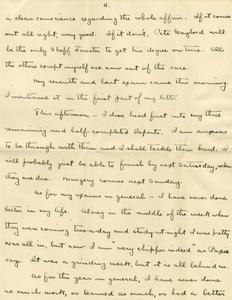 4.
a clear conscience regarding the whole affair. If it comes
out all right, very good. If it don't, Pete Gaylord will
be the only Staff Forester to get his degree on time. All
the others except myself are now out of the race.
My seventh and last exam came this morning.
I mentioned it in the first part of my letter.
This afternoon, I dove head first into my three
remaining and half-completed Reports. I am anxious
to be through with them and I shall tackle them hard. I
will probably just be able to finish by next Saturday, when
they are due. Margery comes next Sunday.
As for my exams in general - I have never done
better in my life. Along in the middle of the week when
they were coming two-a-day and study at night I was pretty
near all in, but now I am "very chipper indeed" as Paxie
say. It was a grinding week, but it is all behind us.
As for the year in general, I have never done
as much work, or learned as much, or had a better